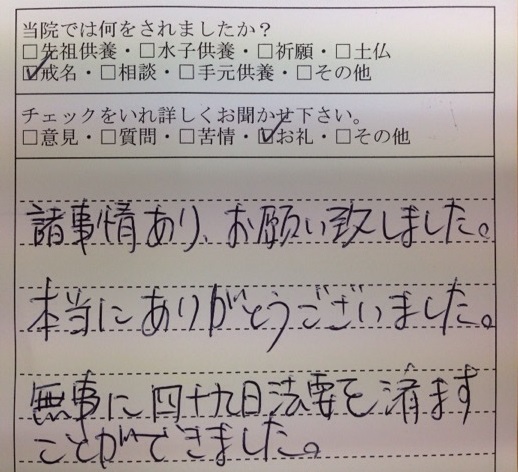 当院では何をされましたか？
□先祖供養・□水子供養・□祈願・□土仏
☑戒名・□相談・□手元供養・□その他
チェックをいれ詳しくお聞かせ下さい。
□意見・□質問・□苦情・☑お礼・□その他
諸事情あり、お願い致しました。
本当にありがとうございました。
無事に四十九日法要を済ます
ことができました。